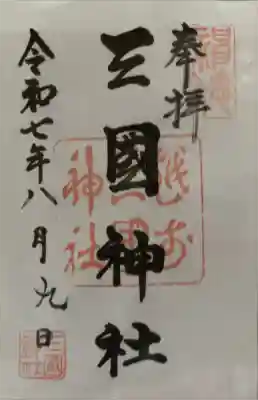 奉拝
三國神社
越前
三國
神社
令和七年八月九日